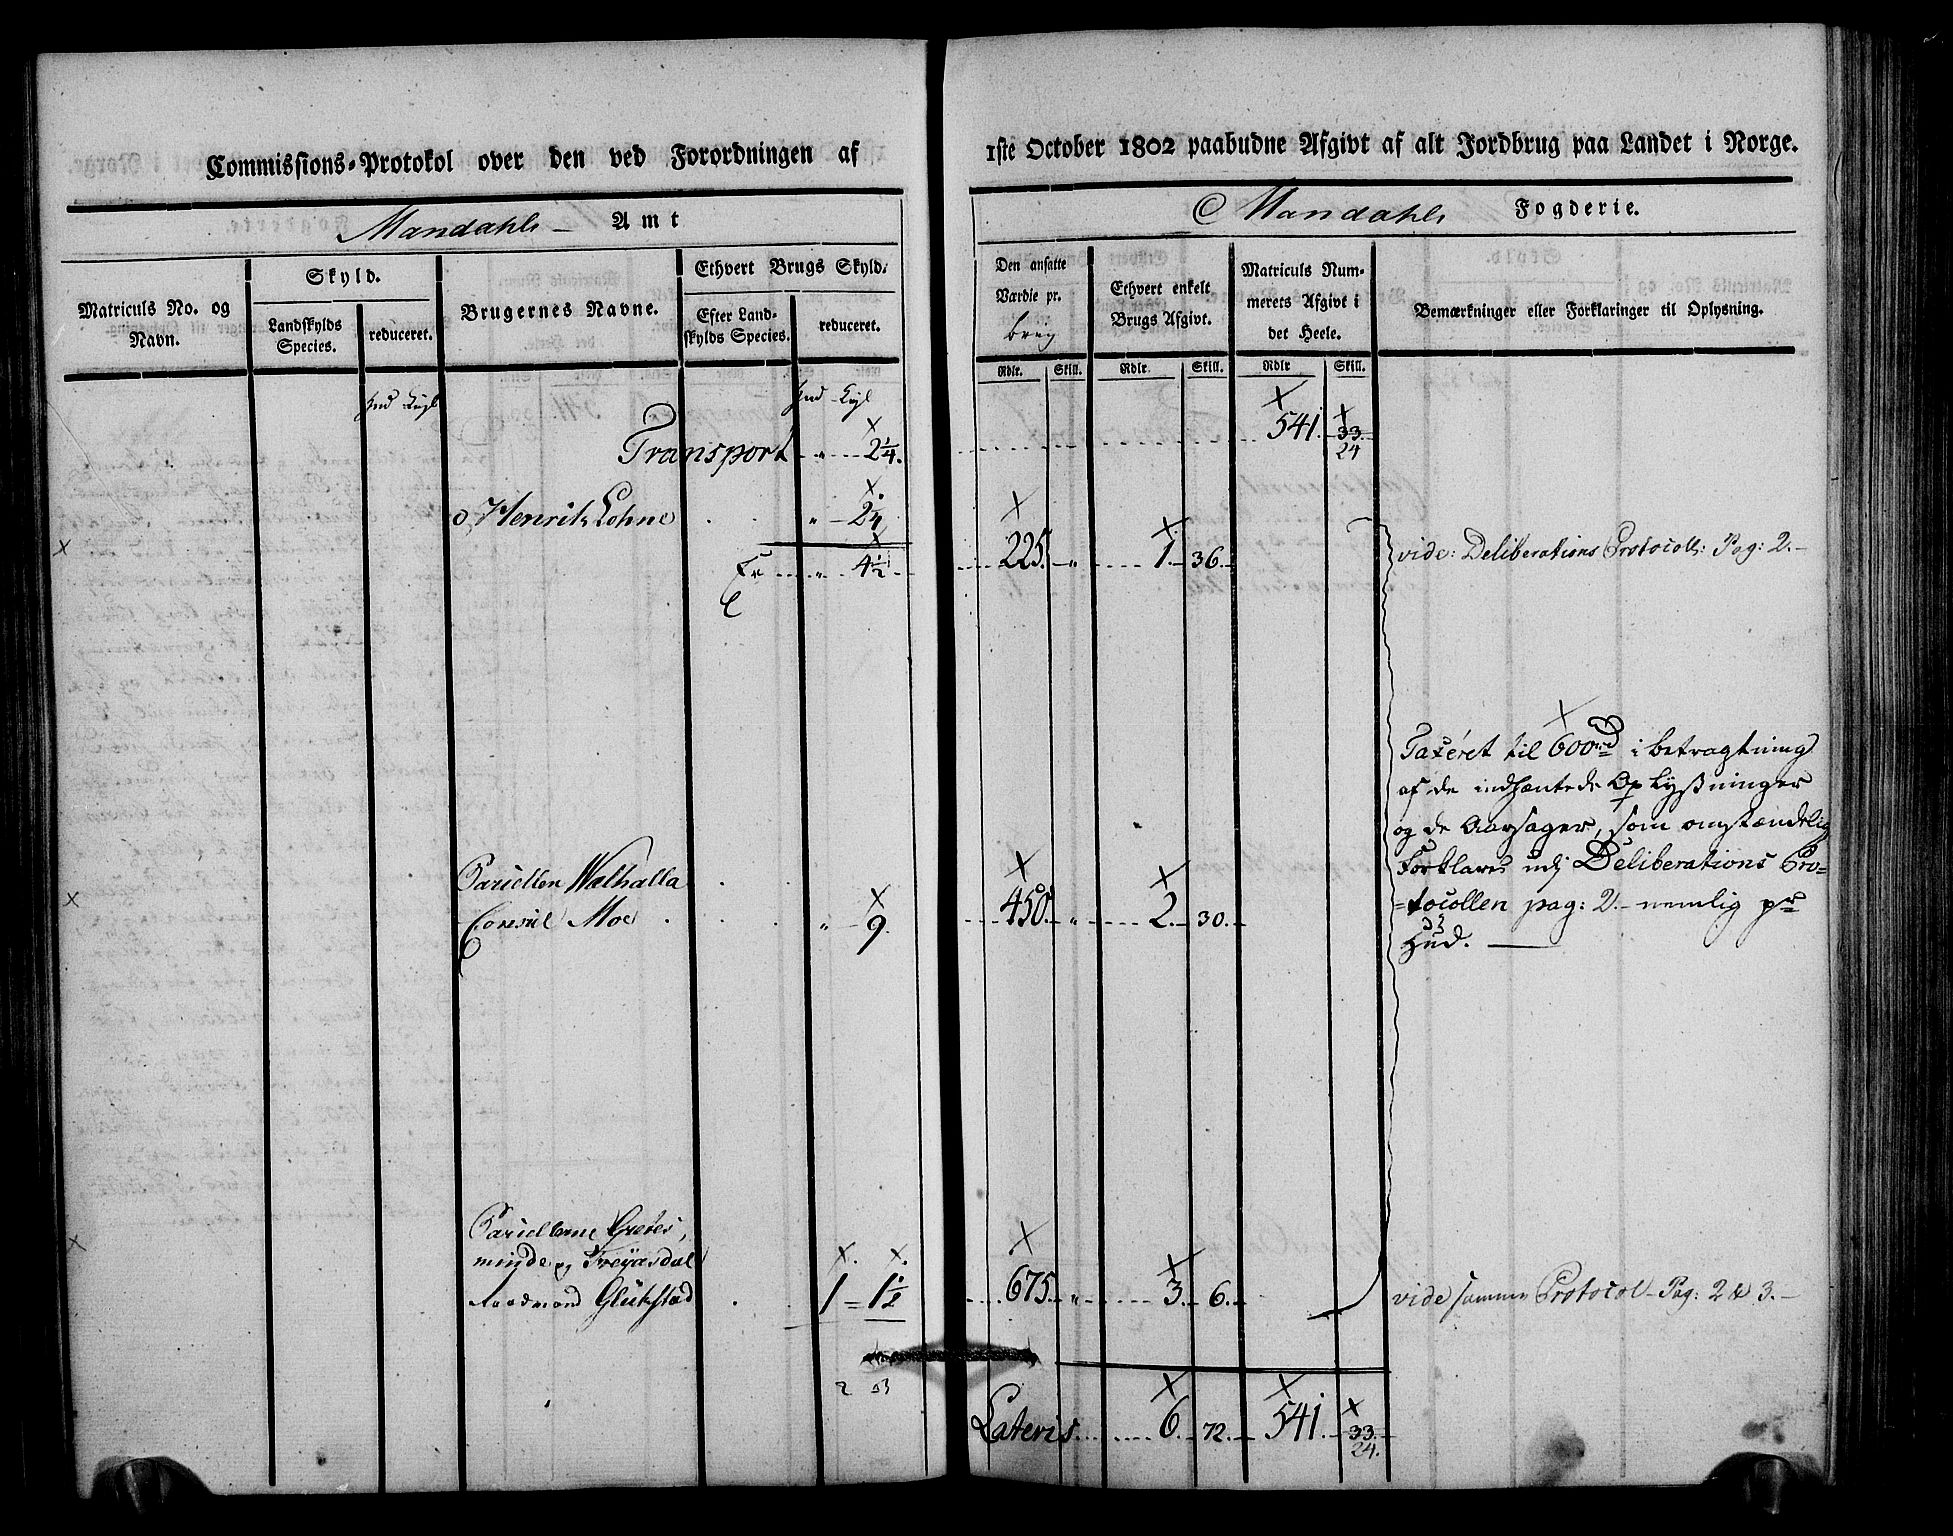 Commissions-Protokol over den ved Forordningen af
1ste October 1802 paabudne Afgivt af alt Jordbrug paa Landet i Norge.
Mandahls Amt
Mandahls Fogderie.
Matriculs No. og Navn.
Skyld.
Landskylds Species.
reduceret.
Brugernes Navne.
Ethvert Brugs Skyld.
Efter Landskylds Species.
reduceret.
Den ansatte Værdie pr. brug
Ethvert enkelt Brugs Afgivt.
Matriculs Nummerets Afgivt i det Heele.
Bemærkninger eller Forklaringer til Oplysning.
Rdlr. Skill. Rdlr. Skill. Rdlr Skill.
Hud Kgl Hud Kgl
Transport " 2¼. 541. 33. 24
Henrik Lohne " 2¼
Er " 4½ 225. " 1. 36. vide: Deliberations Protocoll: Pag: 2.
Taxeret til 600rd i betragtning
af de indhentede Oplysninger
og de Aarsager, som omstændelig
Forklares udj Deliberations Pro=
=tocollen pag: 2. nemlig pr
Hud.
Parcellen Walhalla
Consul Moe " 9. 450. " 2. 30.
Parcellerne Gretes,
minde og Freyasdal
Raadmand Glükstad 1 = 1½ 675. " 3. 6. vide samme Protocol Pag: 2 & 3.
Lateris 6. 72. 541. 33. 24.